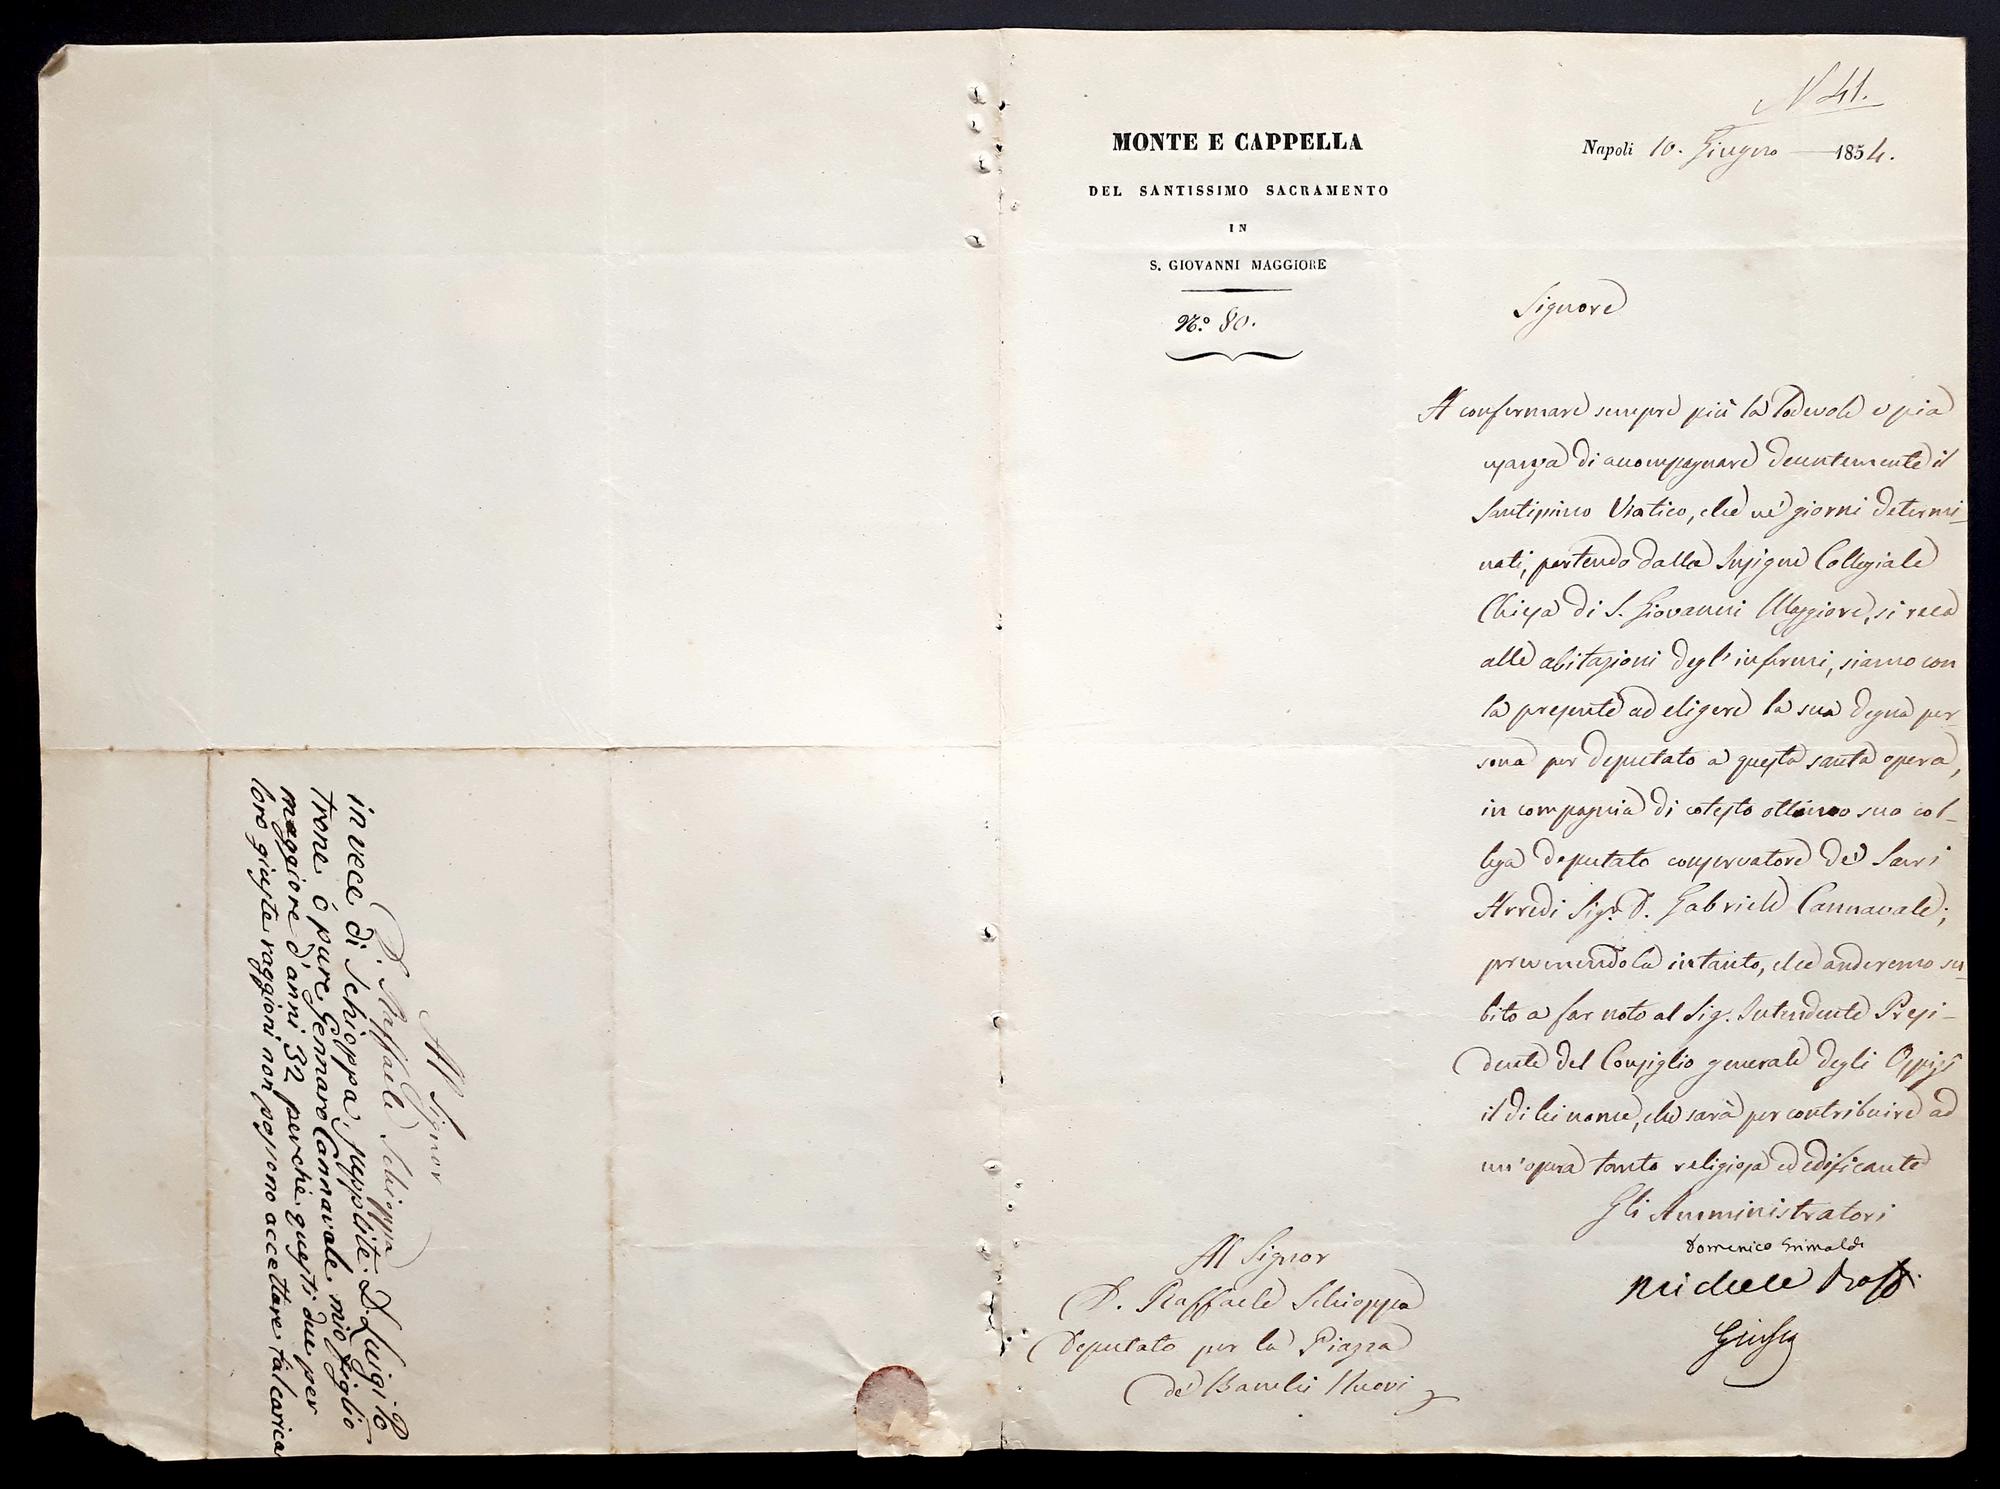 N 41.
Napoli 10. Giugno 1854.
MONTE E CAPPELLA
DEL SANTISSIMO SACRAMENTO
IN
S. GIOVANNI MAGGIORE
N.º 80.
Signore
A confermare sempre più la lodevole e pia
usanza di accompagnare decentemente il
Santissimo Viatico, che ne' giorni determi-
nati, partendo dalla Insigne Collegiale
Chiesa di S. Giovanni Maggiore, si reca
alle abitazioni degl' infermi, siamo con
la presente ad eligere la sua degna per-
sona per deputato a questa santa opera,
in compagnia di cotesto ottimo suo col-
lega deputato conservatore de' Sacri
Arredi Sig.r D. Gabriele Cannavale;
prevenendola intanto, che anderemo su-
bito a far noto al Sig. Intendente Presi-
dente del Consiglio generale degli Ospizî
il di lei nome, che sarà per contribuire ad
un'opera tanto religiosa ed edificante
Gli Amministratori
Domenico Grimaldi
Michele
Al Signor
D. Raffaele Schioppa
Deputato per la Piazza
de' Banchi Nuovi
Al Signor
D. Raffaele Schioppa
in vece di Schioppa, supplite D. Luigi Po
trone, ó pure Gennaro Cannavale mio figlio
maggiore d'anni 32 perchè questi due per
loro giuste raggioni non possono accettare tal carica